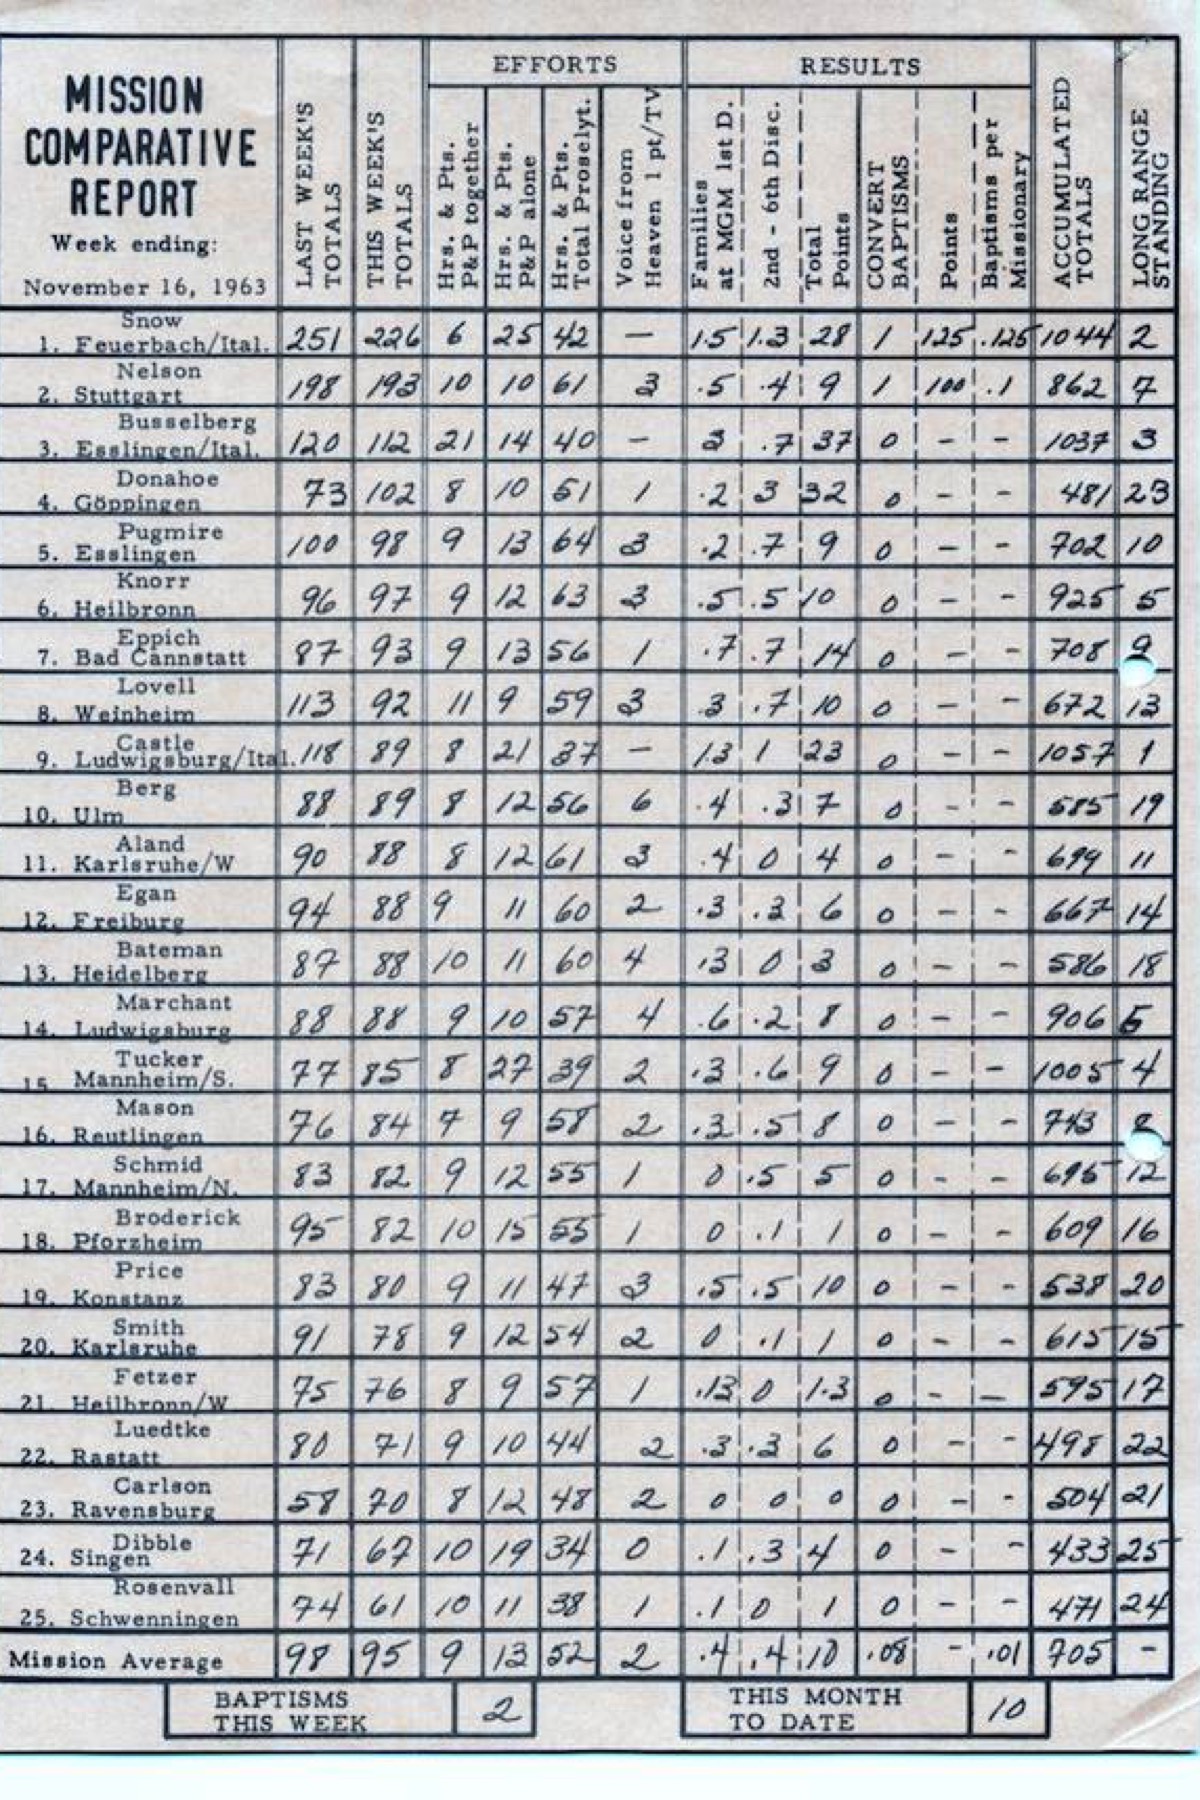 MISSION
COMPARATIVE
REPORT
Week ending:
November 16, 1963
LAST WEEK'S TOTALS
THIS WEEK'S TOTALS
EFFORTS
Hrs. & Pts. P&P together
Hrs. & Pts. P&P alone
Hrs. & Pts. Total Proselyt.
Voice from Heaven 1 pt/TV
RESULTS
Families at MGM 1st D.
2nd - 6th Disc.
Total Points
CONVERT BAPTISMS
Points
Baptisms per Missionary
ACCUMULATED TOTALS
LONG RANGE STANDING
Snow
1. Feuerbach/Ital. 251 226 6 25 42 — 1.5 1.3 28 1 125 .125 1044 2
Nelson
2. Stuttgart 198 193 10 10 61 3 .5 .4 9 1 100 .1 862 7
Busselberg
3. Esslingen/Ital. 120 112 21 14 40 — 3 .7 37 0 - - 1037 3
Donahoe
4. Göppingen 73 102 8 10 51 1 .2 3 32 0 - - 481 23
Pugmire
5. Esslingen 100 98 9 13 64 3 .2 .7 9 0 - - 702 10
Knorr
6. Heilbronn 96 97 9 12 63 3 .5 .5 10 0 - - 925 5
Eppich
7. Bad Cannstatt 87 93 9 13 56 1 .7 .7 14 0 - - 708 9
Lovell
8. Weinheim 113 92 11 9 59 3 .3 .7 10 0 - - 672 13
Castle
9. Ludwigsburg/Ital. 118 89 8 21 37 — 1.3 1 23 0 - - 1057 1
Berg
10. Ulm 88 89 8 12 56 6 .4 .3 7 0 - - 585 19
Aland
11. Karlsruhe/W 90 88 8 12 61 3 .4 0 4 0 - - 699 11
Egan
12. Freiburg 94 88 9 11 60 2 .3 .3 6 0 - - 667 14
Bateman
13. Heidelberg 87 88 10 11 60 4 .3 0 3 0 - - 586 18
Marchant
14. Ludwigsburg 88 88 9 10 57 4 .6 .2 8 0 - - 906 5
Tucker
15 Mannheim/S. 77 85 8 27 39 2 .3 .6 9 0 - - 1005 4
Mason
16. Reutlingen 76 84 7 9 58 2 .3 .5 8 0 - - 743 8
Schmid
17. Mannheim/N. 83 82 9 12 55 1 0 .5 5 0 - - 695 12
Broderick
18. Pforzheim 95 82 10 15 55 1 0 .1 1 0 - - 609 16
Price
19. Konstanz 83 80 9 11 47 3 .5 .5 10 0 - - 538 20
Smith
20. Karlsruhe 91 78 9 12 54 2 0 .1 1 0 - - 615 15
Fetzer
21. Heilbronn/W 75 76 8 9 57 1 .13 0 1.3 0 - — 595 17
Luedtke
22. Rastatt 80 71 9 10 44 2 .3 .3 6 0 - - 498 22
Carlson
23. Ravensburg 58 70 8 12 48 2 0 0 0 0 - - 504 21
Dibble
24. Singen 71 67 10 19 34 0 .1 .3 4 0 - - 433 25
Rosenvall
25. Schwenningen 74 61 10 11 38 1 .1 0 1 0 - - 471 24
Mission Average 98 95 9 13 52 2 .4 .4 10 .08 - .01 705 -
BAPTISMS THIS WEEK 2
THIS MONTH TO DATE 10